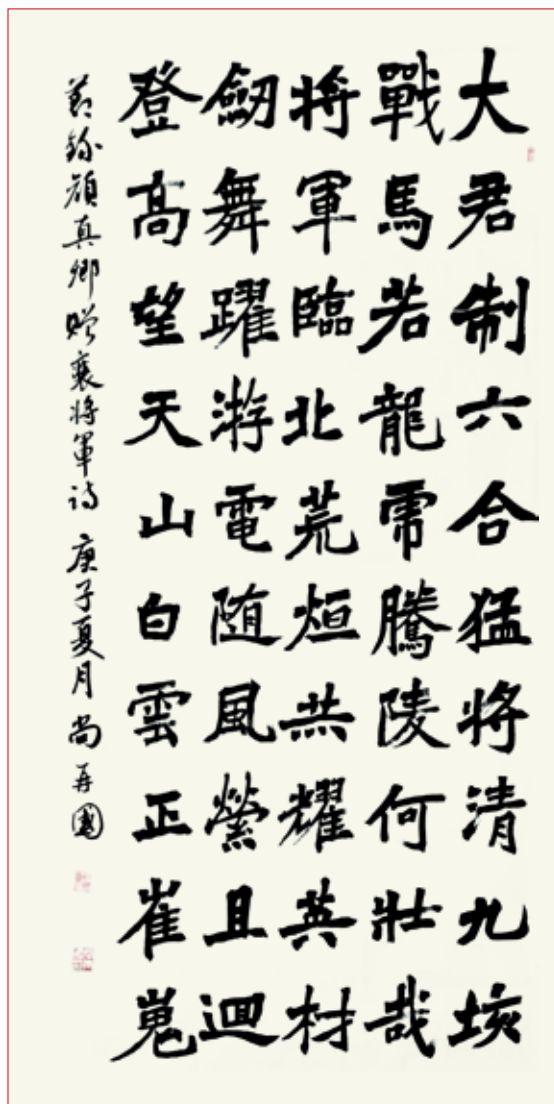 大君制六合猛将清九垓
戰馬若龍乕騰陵何壯哉
将軍臨北荒烜赫耀英材
劒舞躍游電随風縈且迴
登髙望天山白雲正崔嵬
節錄顔真卿贈裴将軍诗 庚子夏月 尚再國